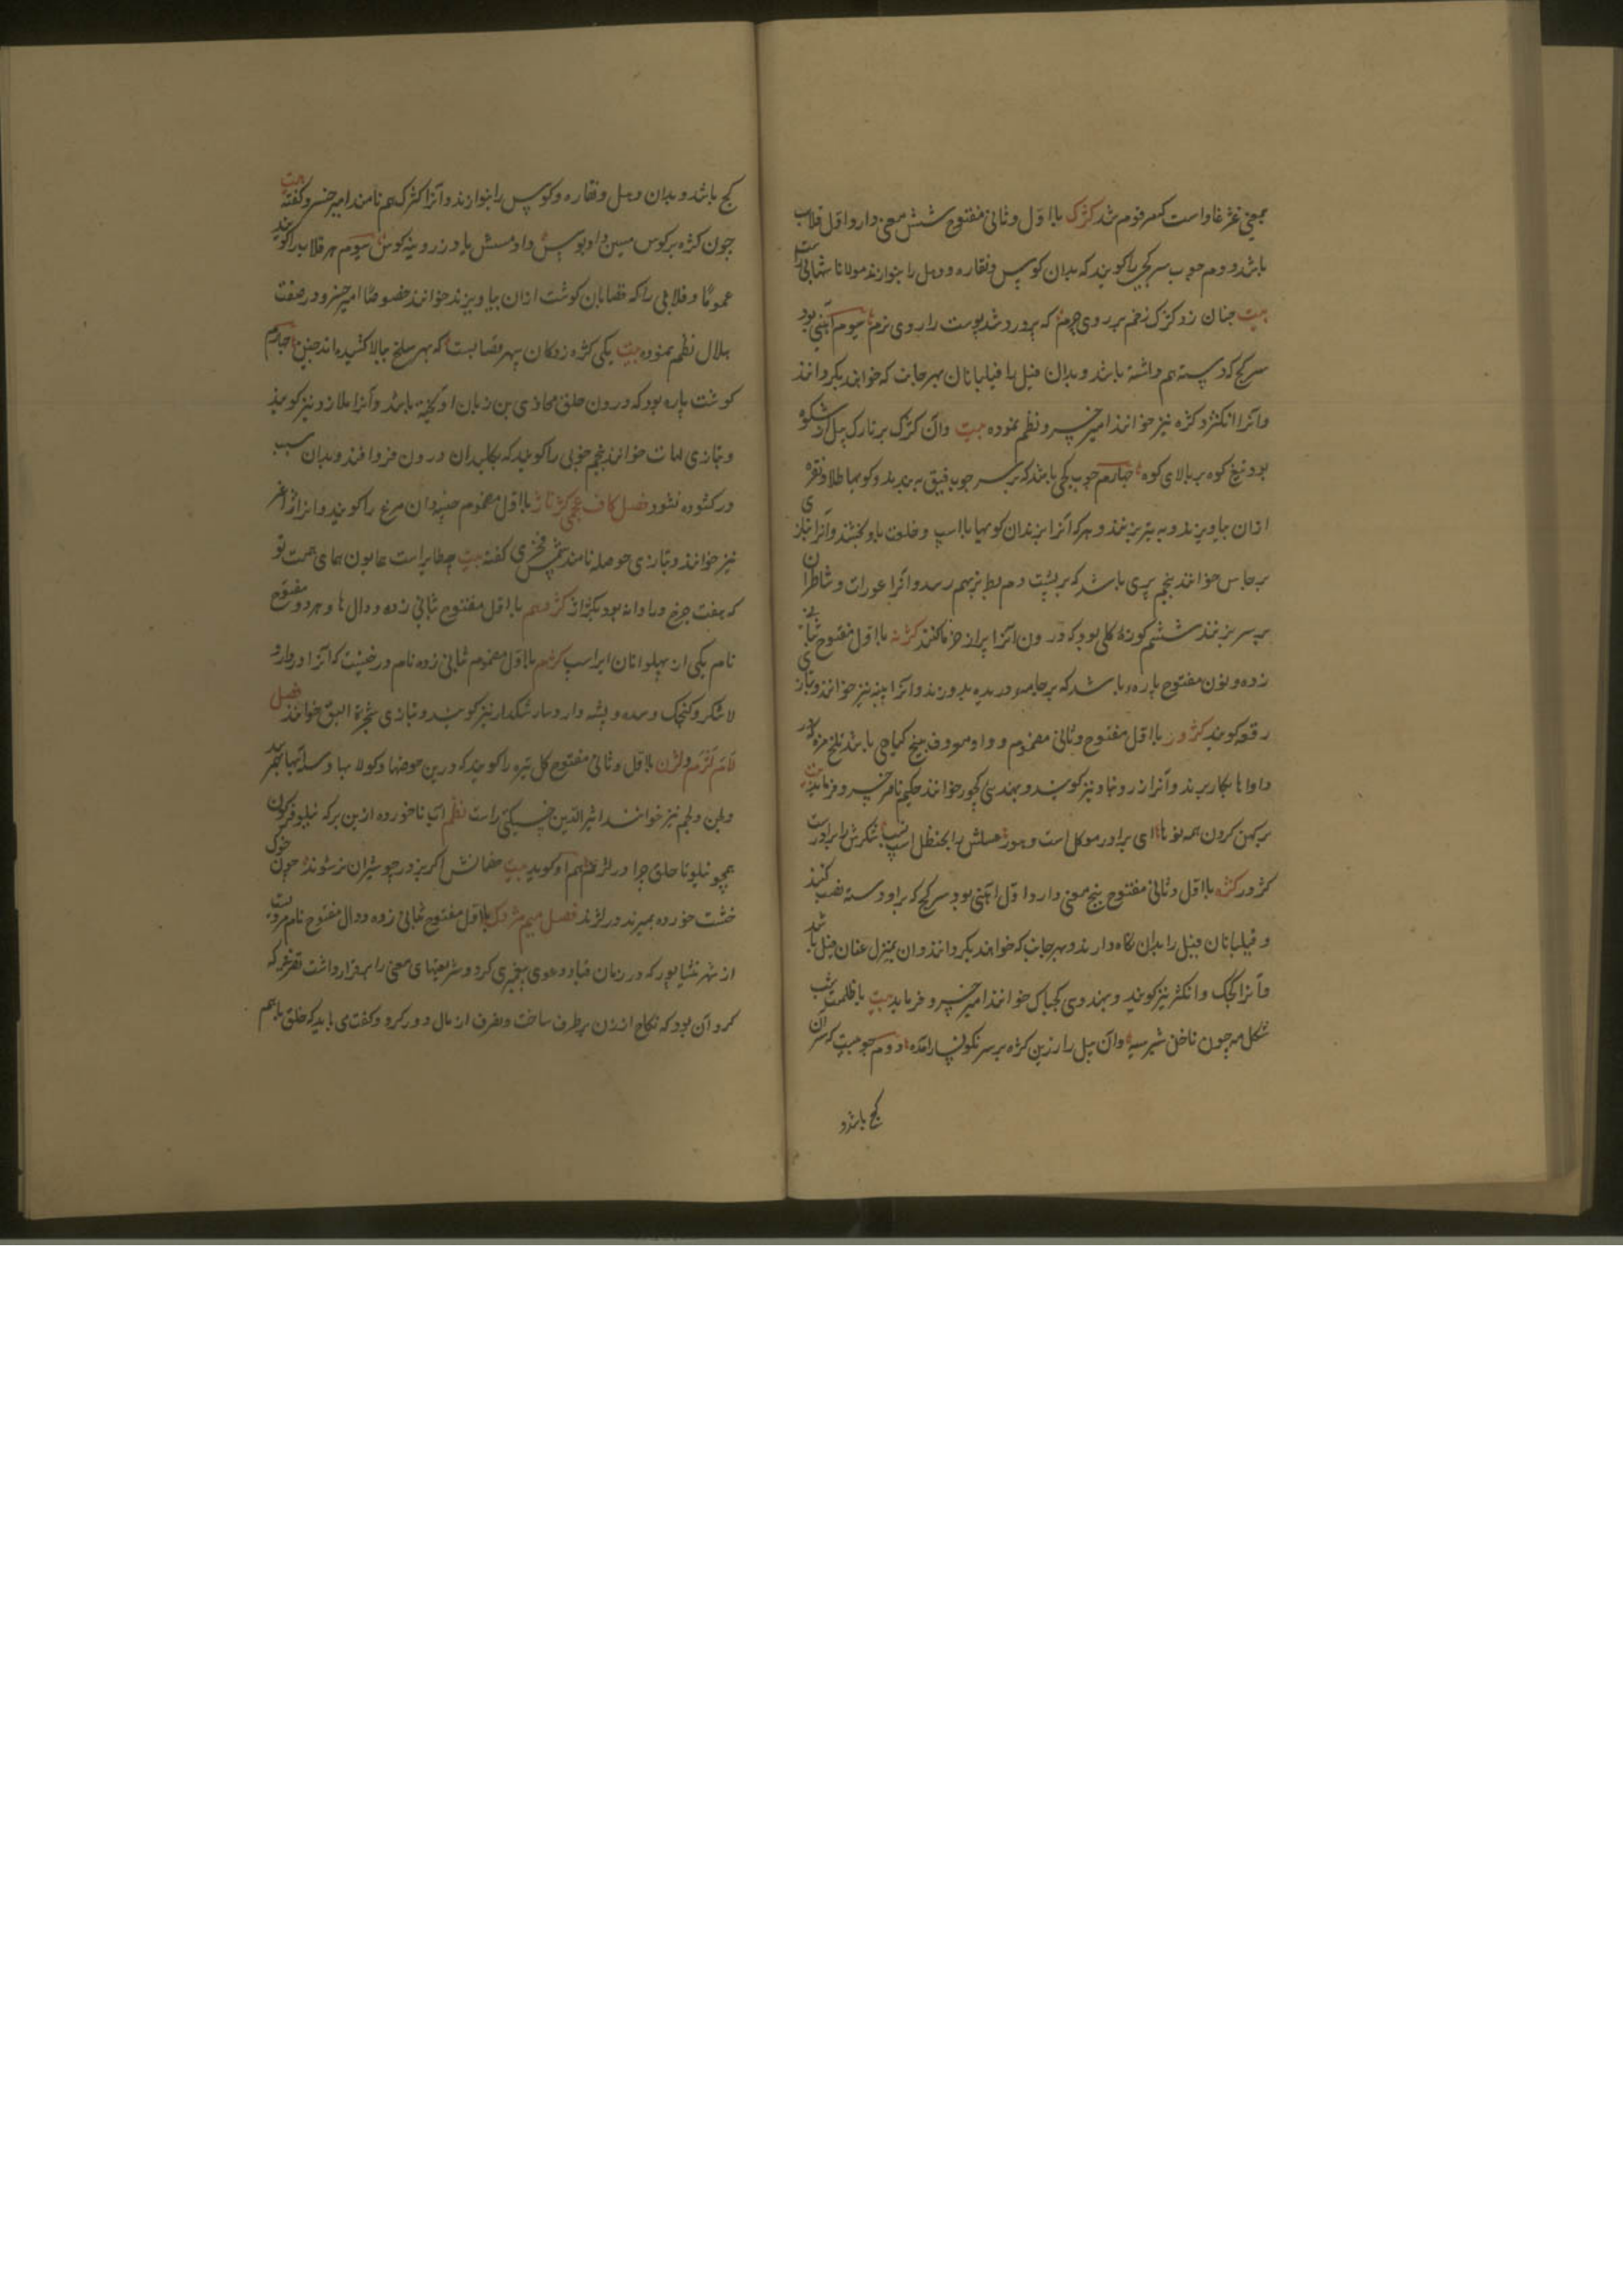 بمعنی غژغاو است که مرقوم شد کژک با اول و ثانی مفتوح شش معنی دارد اول قلاب
باشد دوم چوب سرکجی را گویند که بدان کوس و نقاره و دهل را بنوازند مولانا شهابی راست
بیت چنان زد کژک زخم بر روی چرم که بر درد شد پوست را روی نرم سیوم آهنی بود
سرکج که دسته هم داشته باشد و بدان فیل را فیلبانان بهر جانب که خواهند بگردانند
و آنرا انگژ و کژه نیز خوانند امیر خسرو نظم نموده بیت وان کژک بر تارک پیل شکوه
بود تیغ کوه بر بالای کوه چهارم چوب کجی باشد که بر سر چوب قبق به بندند و کوبها طلا و نقره
ازان بیاویزند و به تیر بزنند و هر که آنرا بزند ان کویها با اسپ و خلعت باو بخشند و آنرا بتازی
برجاس خوانند پنجم پری باشد که بر پشت دم بط بر هم رسد و آنرا عورات و شاطران
بر سر بزنند ششم کوزه گلی بود که درون آنرا پر از خرما کنند کژنه با اول مفتوح بثانی
زده و نون مفتوح پاره باشد که بر جامه دریده بدوزند و آنرا پینه نیز خوانند و بتازی
رقعه گویند کژور با اول مفتوح و ثانی مضموم و واو معروف بیخ گیاهی باشد تلخ مزه که در
دواها بکار برند و آنرا زرونباد نیز گویند و بهندی کچور خوانند حکیم ناصر خسرو فرماید بیت
بر کهن کردن همه نوها ای برادر موکل است و عسلش را بحنظل است نسب شکرش را برادر است
کژور کژه با اول و ثانی مفتوح پنج معنی دارد اول آهنی بود سرکج که براو دسته نصب کنند
و فیلبانان فیل را بدان نگاه دارند و بهر جانب که خواهند بگردانند و ان بمنزل عنان فیل باشد
و آنرا کجک و انگژ نیز گویند و بهندوی کجباک خوانند امیر خسرو فرماید بیت با ظلمت شب
شکل مه چون ناخن شیر سیه وان پیل را زرین کژه بر سر نگونسار آمده دوم چوبیست که سر آن
کج باشد و
کج باشد و بدان دهل و نقاره و کوس را بنوازند و آنرا کژک هم نامند امیر خسرو گفته بیت
چون کژه بر کوس مسین داد بوس داد مسش یاد ز رویینه کوس سیوم هر قلاب را گویند
عموما و قلابی را که قصابان گوشت ازان بیاویزند خوانند خصوصا امیر خسرو در صفت
هلال نظم نموده بیت یکی کژه ز دکان سپهر قصابست که بهر سلخ ببالا کشیده اند چنین چهارم
گوشت پاره بود که درون حلق محاذی بن زبان آویخته باشد و آنرا ملازه نیز گویند
و بتازی لهات خوانند پنجم چوبی را گویند که بکلیدان درون فرو افتد و بدان سبب
در گشوده نشود فصل کاف عجمی کژناژ با اول مضموم چینه دان مرغ را گویند و انرا ژاغر
نیز خوانند و بتازی حوصله نامند شمس فخری گفته بیت طایر است همایون همای همت تو
که هفت چرخ ورا دانه بود کژدهم با اول مفتوح بثانی زده و دال ها و هر دو مفتوح
نام یکی از پهلوانان ایر است کژم با اول مضموم ثانی زده نام درختیست که آنرا
لاشکر و کنجک و سده و پشه دار و سارشکدار نیز گویند و بتازی شجرة البق خوانند فصل
لام لژم و لژن با اول و ثانی مفتوح گل تیره را گویند که در بن حوضها و کولابها و
و لجن و لجم نیز خوانند اثیرالدین اخسیکتی راست نظم آب ناخورده ازین برکه نیلوفر گون
همچو نیلوفر تا حلق چرا در لژم هم او گوید بیت خصمانش اگر بزور چو شیران نر شوند چون خوک
خشت خورده بمیرند در لژند فصل میم مژدک با اول مفتوح بثانی زده و دال مفتوح نام مردیست
از شهر نشابور که در زمان قباد دعوی پیغمبری کرد و شریعتهای معنی را برقرار داشت تغیر که
کرد آن بود که نکاح از زن برطرف ساخت و تصرف از مال دور کرد و گفت می باید که خلق با هم